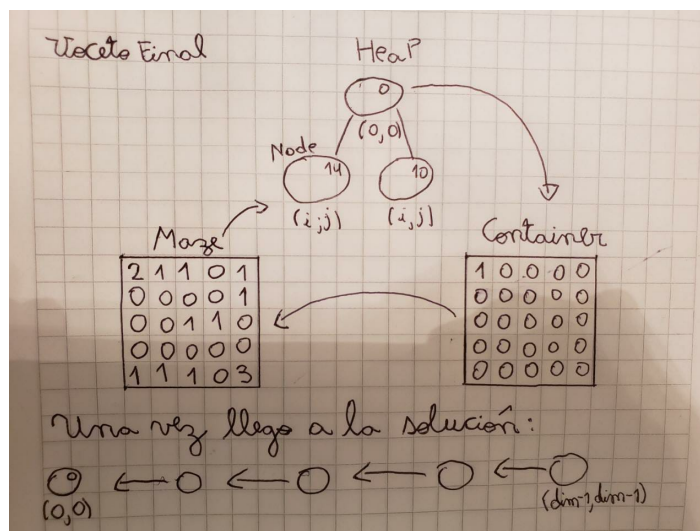 Voceto Final
HeaP
0
(0,0)
Node
14
10
(i,j)
(i,j)
Maze
2 1 1 0 1
0 0 0 0 1
0 0 1 1 0
0 0 0 0 0
1 1 1 0 3
Container
1 0 0 0 0
0 0 0 0 0
0 0 0 0 0
0 0 0 0 0
0 0 0 0 0
Una vez llego a la solución:
(0,0)
(dim-1,dim-1)